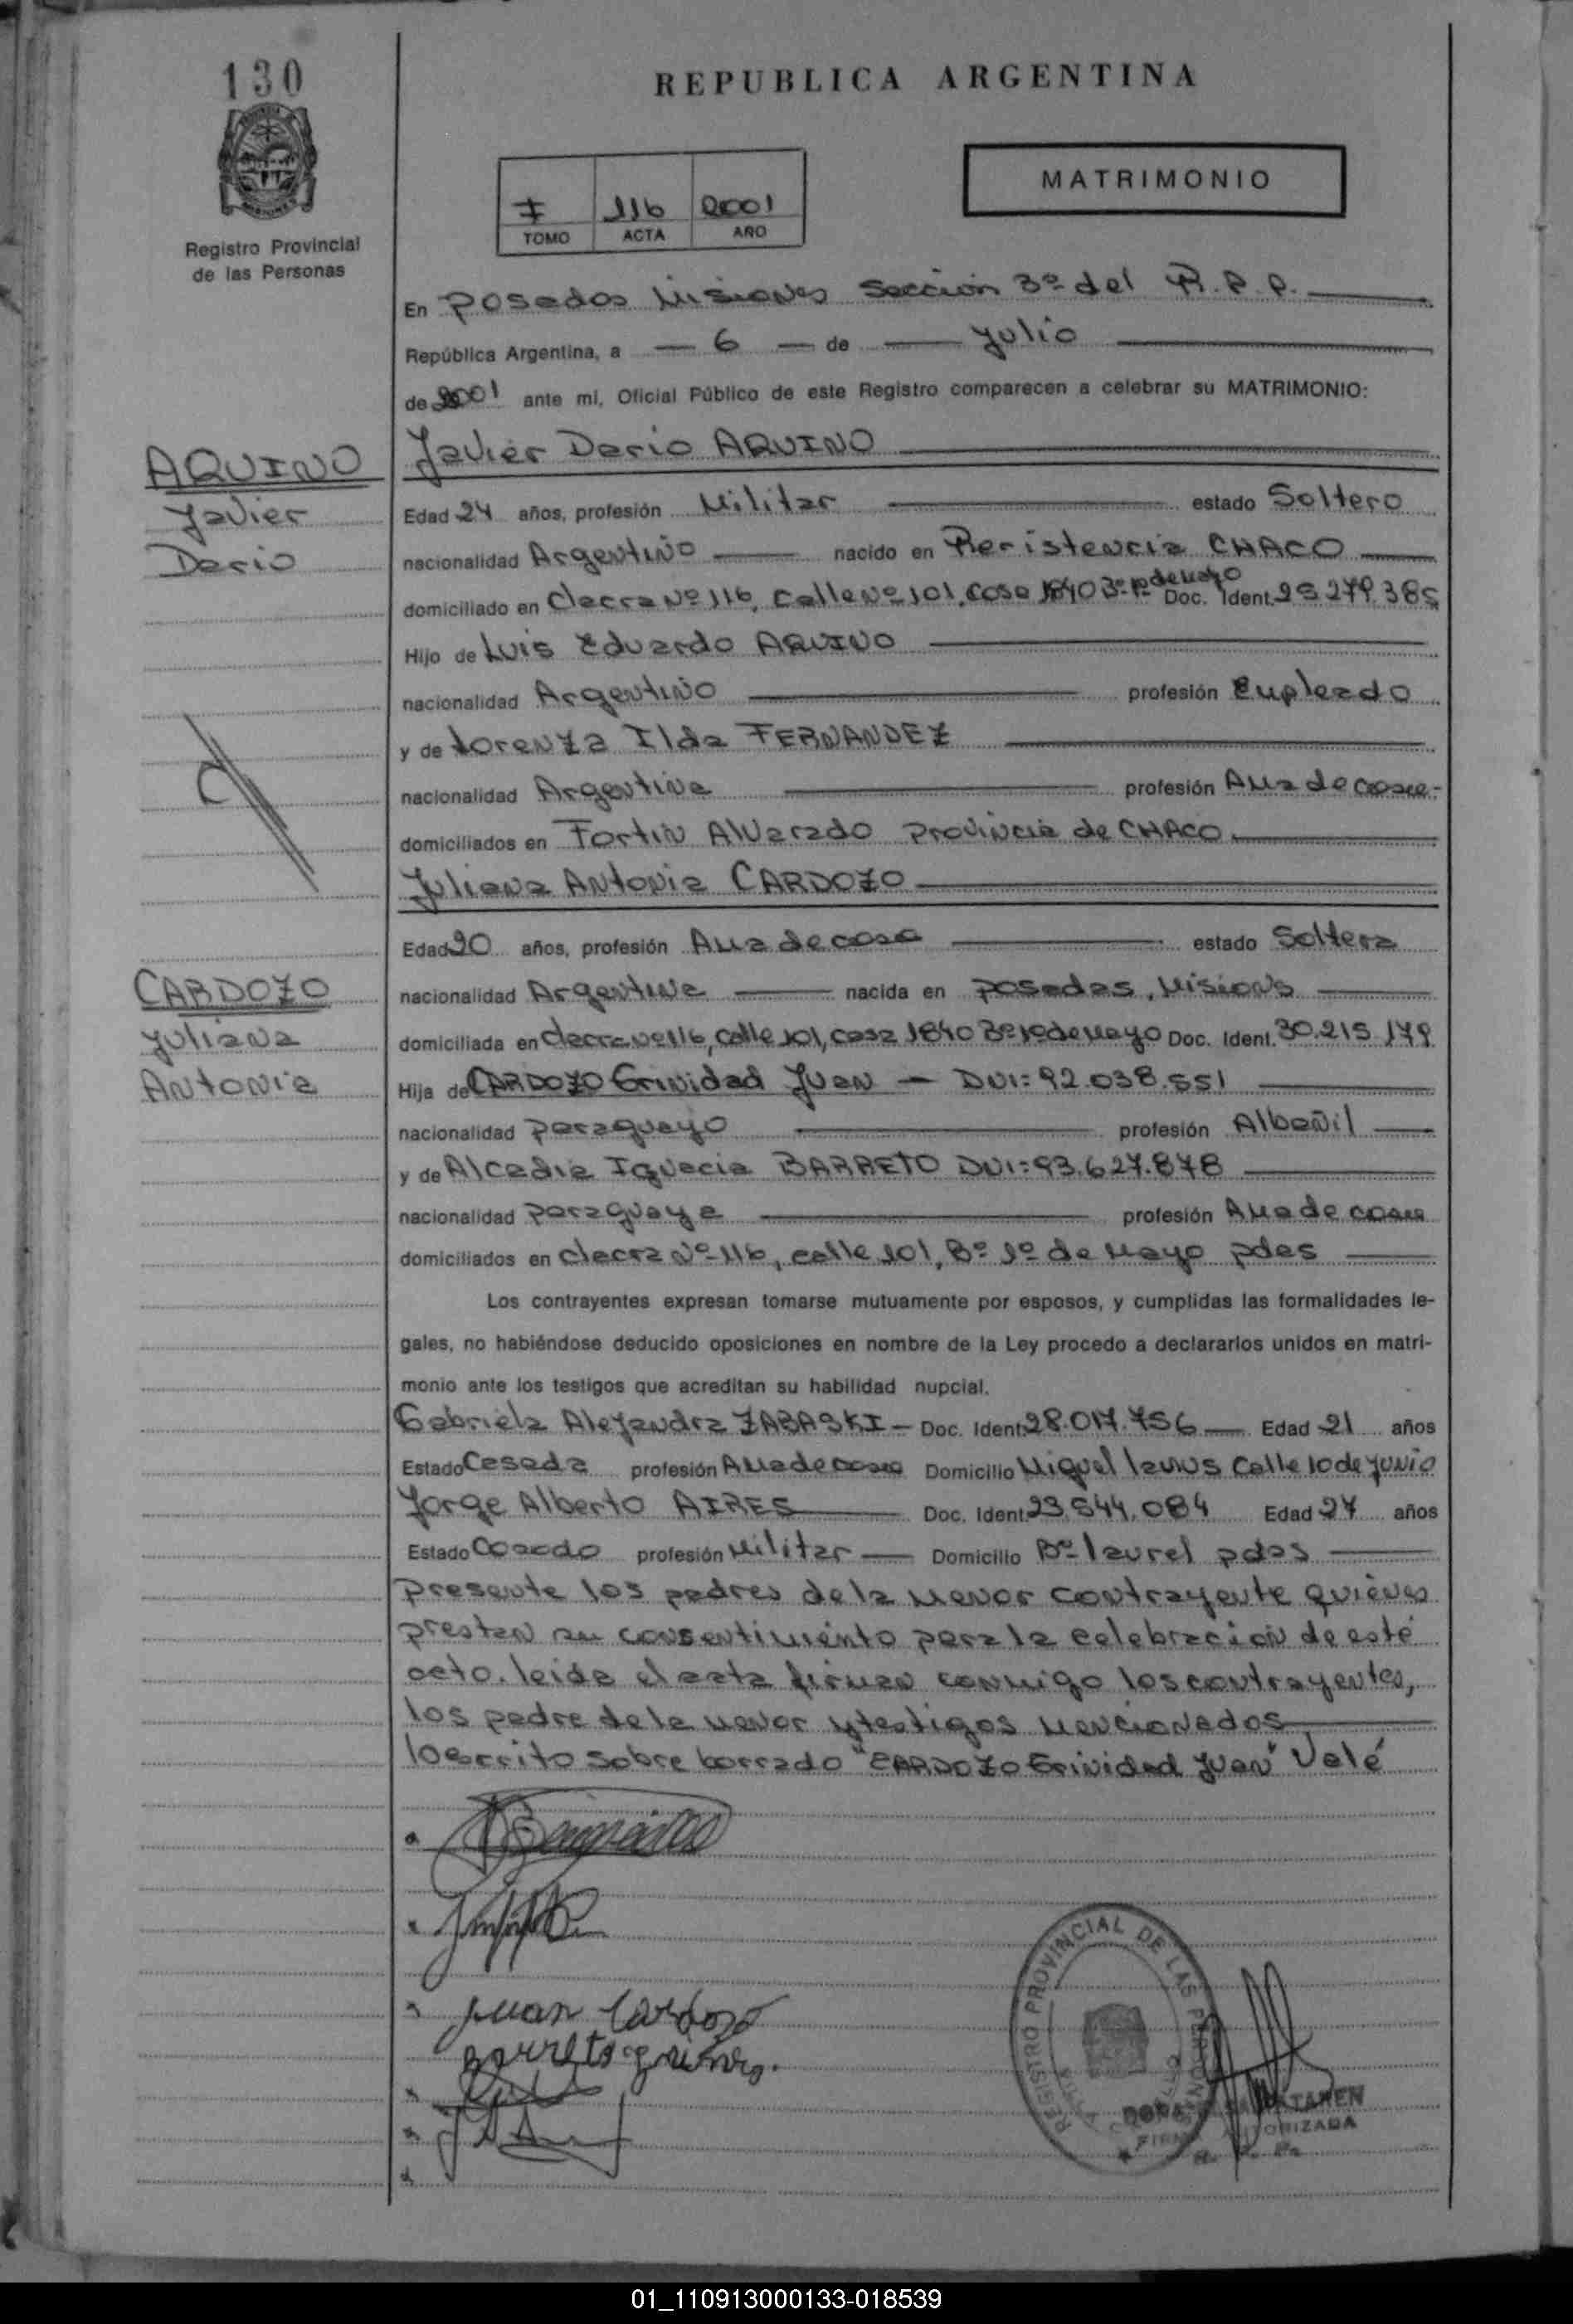 130
REPUBLICA ARGENTINA
MATRIMONIO
I 116 2001
TOMO ACTA AÑO
Registro Provincial
de las Personas
En Posadas Misiones Sección 3º del R.P.P.
República Argentina, a - 6 - de Julio
de 2001 ante mi, Oficial Público de este Registro comparecen a celebrar su MATRIMONIO:
AQUINO
Javier
Dario
Javier Dario AQUINO
Edad 24 años, profesión Militar estado Soltero
nacionalidad Argentino nacido en Reristencia CHACO
domiciliado en Chacra Nº 116, Calle Nº 101, Casa 1840 Bº 1º de Mayo Doc. Ident. 25.279.385
Hijo de Luis Eduardo AQUINO
nacionalidad Argentino profesión Empleado
y de Lorenza Ilda FERNANDEZ
nacionalidad Argentina profesión Ama de casa
domiciliados en Fortin Alvarado Provincia de CHACO
Juliana Antonia CARDOZO
Edad 20 años, profesión Ama de casa estado Soltera
CARDOZO
Juliana
Antonia
nacionalidad Argentina nacida en Posadas, Misions
domiciliada en Chacra Nº 116, Calle 101, casa 1840 Bº 1º de Mayo Doc. Ident. 30.215.179
Hija de CARDOZO Grinidad Juan - DNI: 92.038.551
nacionalidad paraguayo profesión Albañil
y de Alcadia Ignacia BARRETO DNI: 93.627.878
nacionalidad paraguaya profesión Ama de casa
domiciliados en Chacra Nº 116, calle 101, Bº 1º de Mayo pdas
Los contrayentes expresan tomarse mutuamente por esposos, y cumplidas las formalidades le-
gales, no habiéndose deducido oposiciones en nombre de la Ley procedo a declararlos unidos en matri-
monio ante los testigos que acreditan su habilidad nupcial.
Gabriela Alejandra ZABASKI - Doc. Ident. 28.017.756 Edad 21 años
Estado Casada profesión Ama de casa Domicilio Miguel lanus Calle 10 de Junio
Jorge Alberto AIRES Doc. Ident. 23.544.084 Edad 27 años
Estado Casado profesión Militar Domicilio Bº laurel pdas
presente los padres de la menor contrayente quienes
prestan su consentimiento para la celebracion de este
acto. leida el acta firman conmigo los contrayentes,
los padre de la menor y testigos mencionados
lo escrito sobre borrado "CARDOZO Grinidad Juan" Vale
Juan Cardozo
REGISTRO PROVINCIAL DE LAS PERSONAS
FIRMA AUTORIZADA
01_110913000133-018539